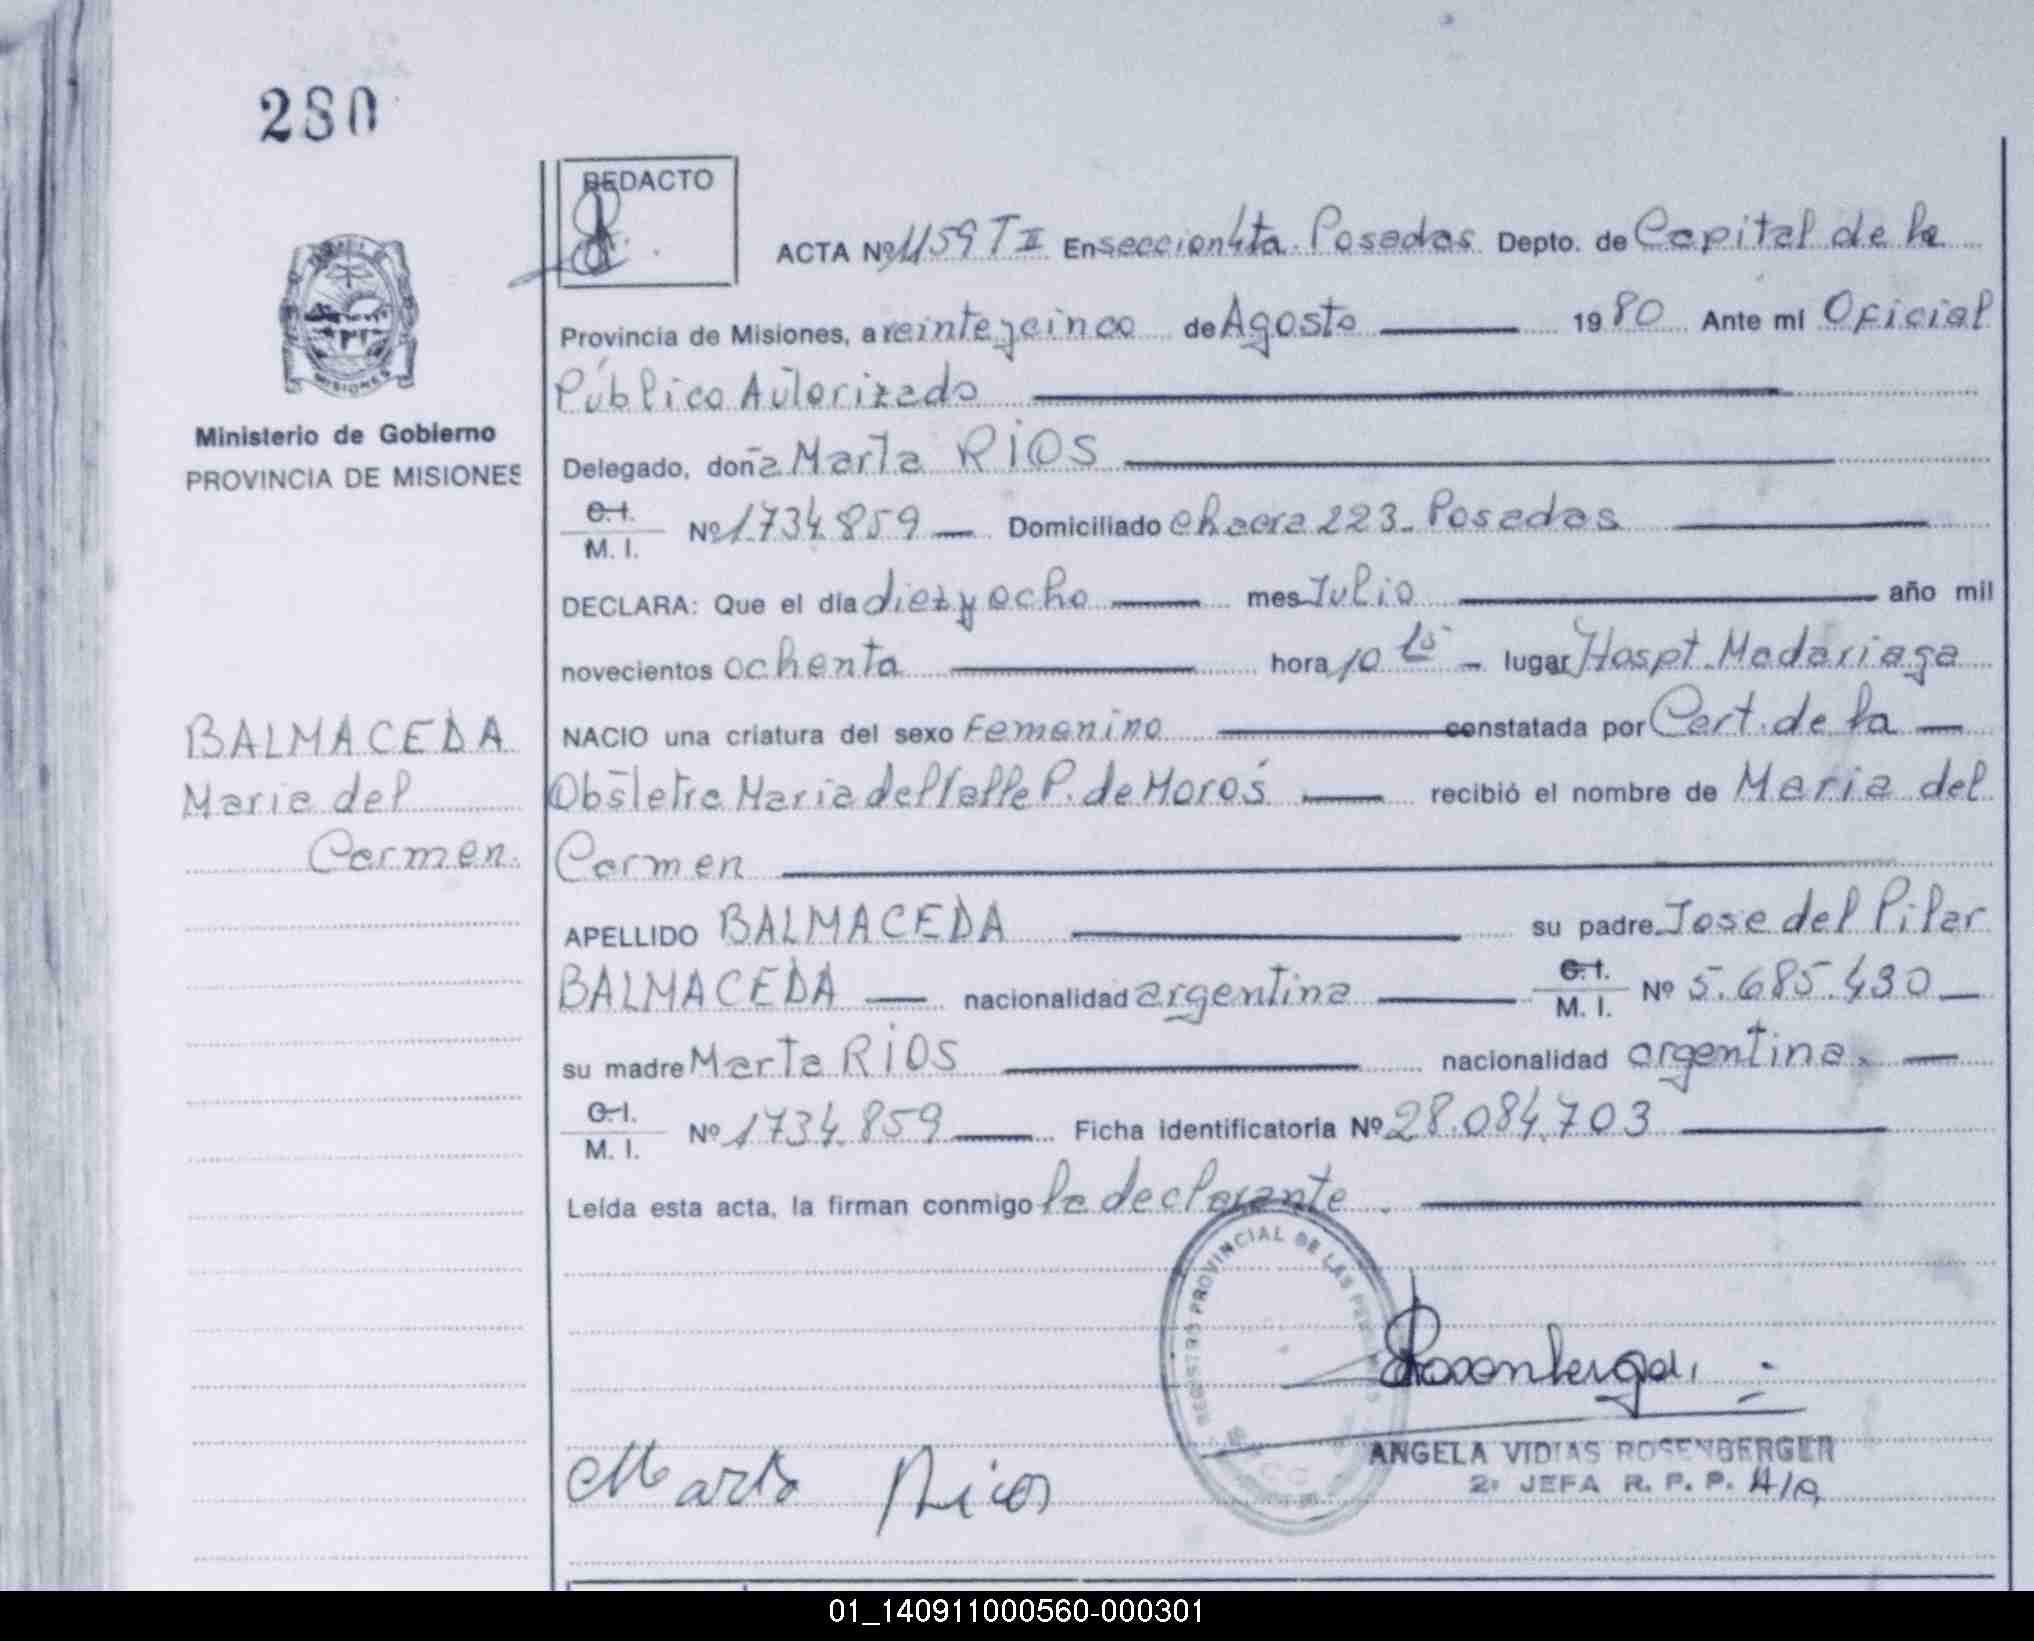 280
REDACTO
ACTA Nº 1159 T II En seccion 4ta. Posadas Depto. de Capital de la
Provincia de Misiones, a veinte y cinco de Agosto 1980 Ante mi Oficial
Público Autorizado
Ministerio de Gobierno
PROVINCIA DE MISIONES
MISIONES
Delegado, doña Marta RIOS
C.I. M.I. Nº 1734.859 Domiciliado chacra 223. Posadas
DECLARA: Que el día diez y ocho mes Julio año mil
novecientos ochenta hora 10 lugar Hospt. Madariaga
NACIO una criatura del sexo Femenino constatada por Cert. de la
Obstetra Maria del Valle P. de Moros recibió el nombre de Maria del
Carmen
BALMACEDA
Maria del
Carmen.
APELLIDO BALMACEDA su padre Jose del Pilar
BALMACEDA nacionalidad argentina C.I. M.I. Nº 5.685.430
su madre Marta RIOS nacionalidad argentina.
C.I. M.I. Nº 1734.859 Ficha identificatoria Nº 28.084.703
Leída esta acta, la firman conmigo la declarante.
REGISTRO PROVINCIAL DE LAS PERSONAS
Marta Rios
ANGELA VIDIAS ROSENBERGER
2ª JEFA R. P. P. A/c
01_140911000560-000301